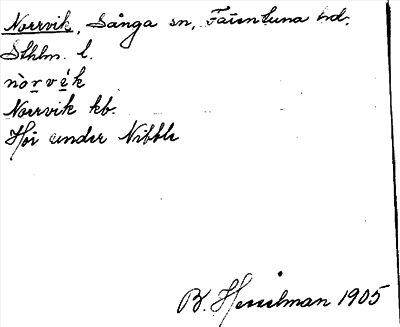 Norrvik, Sånga sn, Färentuna hd.
Sthlm. l.
nòrvék
Norrvik kb.
Hör under Nibble
B. Hesselman 1905